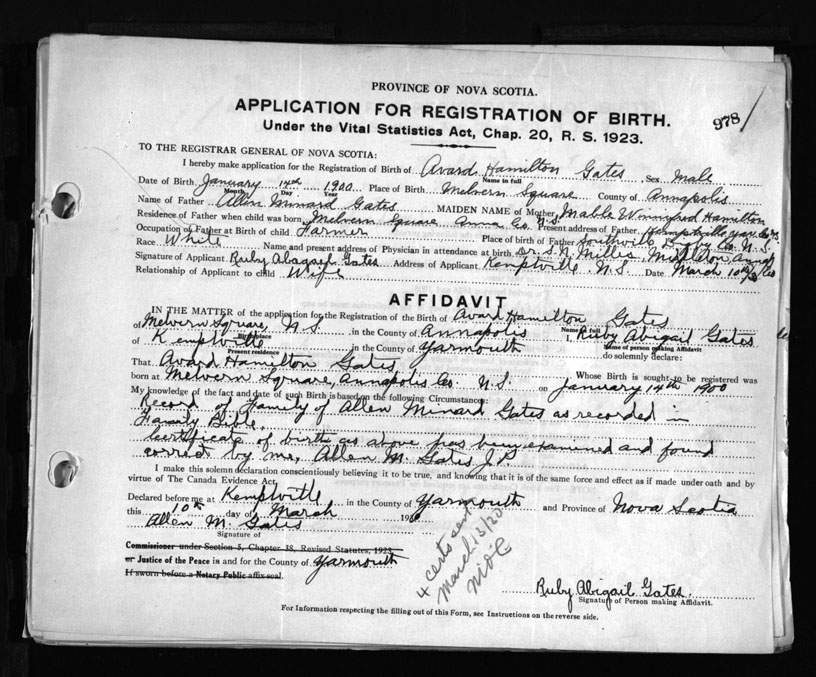 PROVINCE OF NOVA SCOTIA.
APPLICATION FOR REGISTRATION OF BIRTH.
978
Under the Vital Statistics Act, Chap. 20, R. S. 1923.
TO THE REGISTRAR GENERAL OF NOVA SCOTIA:
I hereby make application for the Registration of Birth of Avard Hamilton Gates Sex Male
Name in full
Date of Birth January 14th 1900 Place of Birth Melvern Square County of Annapolis
Month Day Year
Name of Father Allen Minard Gates MAIDEN NAME of Mother Mable Winnifred Hamilton
Residence of Father when child was born Melvern Square Anna Co. N.S. Present address of Father Kemptville, Yar. Co. N.S.
Occupation of Father at Birth of child Farmer Place of birth of Father Southville Digby Co. N.S.
Race White Name and present address of Physician in attendance at birth Dr. S. N. Miller, Middleton, Annap Co
Signature of Applicant Ruby Abagail Gates Address of Applicant Kemptville N.S. Date March 10th
Relationship of Applicant to child Wife
AFFIDAVIT
IN THE MATTER of the application for the Registration of the Birth of Avard Hamilton Gates
Name in full
of Melvern Square, N.S. in the County of Annapolis I, Ruby Abigail Gates
of Kemptville in the County of Yarmouth do solemnly declare:
Present residence Name of person making Affidavit
That Avard Hamilton Gates Whose Birth is sought to be registered was
born at Melvern Square, Annapolis Co. N.S. on January 14th 1900
My knowledge of the fact and date of such Birth is based on the following Circumstances:
Record of Family of Allen Minard Gates as recorded in
Family Bible.
Certificate of birth as above has been examined and found
correct by me, Allen M. Gates J.P.
I make this solemn declaration conscientiously believing it to be true, and knowing that it is of the same force and effect as if made under oath and by
virtue of The Canada Evidence Act.
Declared before me at Kemptville in the County of Yarmouth and Province of Nova Scotia
this 10th day of March 19
Allen M. Gates
Signature of
Commissioner under Section 5, Chapter 38, Revised Statutes, 1923
or Justice of the Peace in and for the County of Yarmouth
If sworn before a Notary Public affix seal.
4 certs sent
March 13/20
Ruby Abigail Gates.
Signature of Person making Affidavit.
For Information respecting the filling out of this Form, see Instructions on the reverse side.